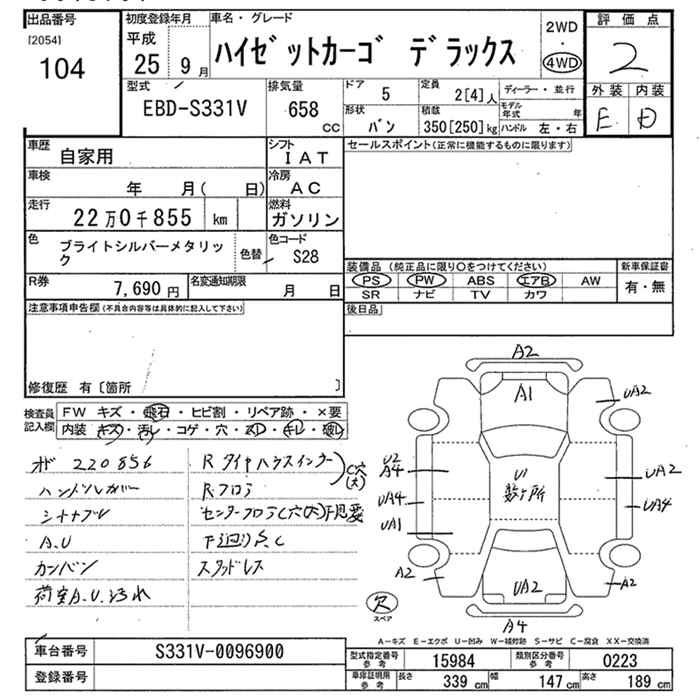 出品番号
[2054]
104
初度登録年月
平成
25 9月
車名・グレード
ハイゼットカーゴ デラックス
2WD
・
4WD
評価点
2
外装 内装
E D
型式
EBD-S331V
排気量
658
CC
ドア
5
定員
2[4]人
ディーラー・並行
形状
バン
積載
350[250]kg
モデル年式 年
ハンドル 左・右
車歴
自家用
シフト
IAT
車検
年 月( 日)
冷房
AC
走行
22万0千855 km
燃料
ガソリン
色
ブライトシルバーメタリック
色替
色コード
S28
R券
7,690円
名変通知期限
月 日
セールスポイント(正常に機能するものに限ります)
装備品 (純正品に限り○をつけてください)
PS PW ABS エアB AW
SR ナビ TV カワ
新車保証書
有・無
後日品
注意事項申告欄(不具合内容等は具体的に記入して下さい)
修復歴 有〔箇所 〕
検査員記入欄
FW キズ・飛石・ヒビ割・リペア跡・×要
内装 キズ・汚レ・コゲ・穴
オド 220856
ハンドルカバー
A.U
カンバン
荷室A.U.汚れ
R タイヤハウスインナー
Rフロア
C穴(大)
センターフロアC穴(大)下見要
下廻りS.C
スタッドレス
A2
A1
UA2
U2
A4
UA4
UA1
A2
U1
数ヶ所
UA2
UA4
A2
UA2
A4
欠
スペア
A-キズ E-エクボ U-凹み W-補修跡 S-サビ C-腐食 XX-交換済
車台番号
S331V-0096900
登録番号
型式指定番号
参考
15984
類別区分番号
参考
0223
車庫証明用
参考
長さ 339 cm 幅 147 cm 高さ 189 cm